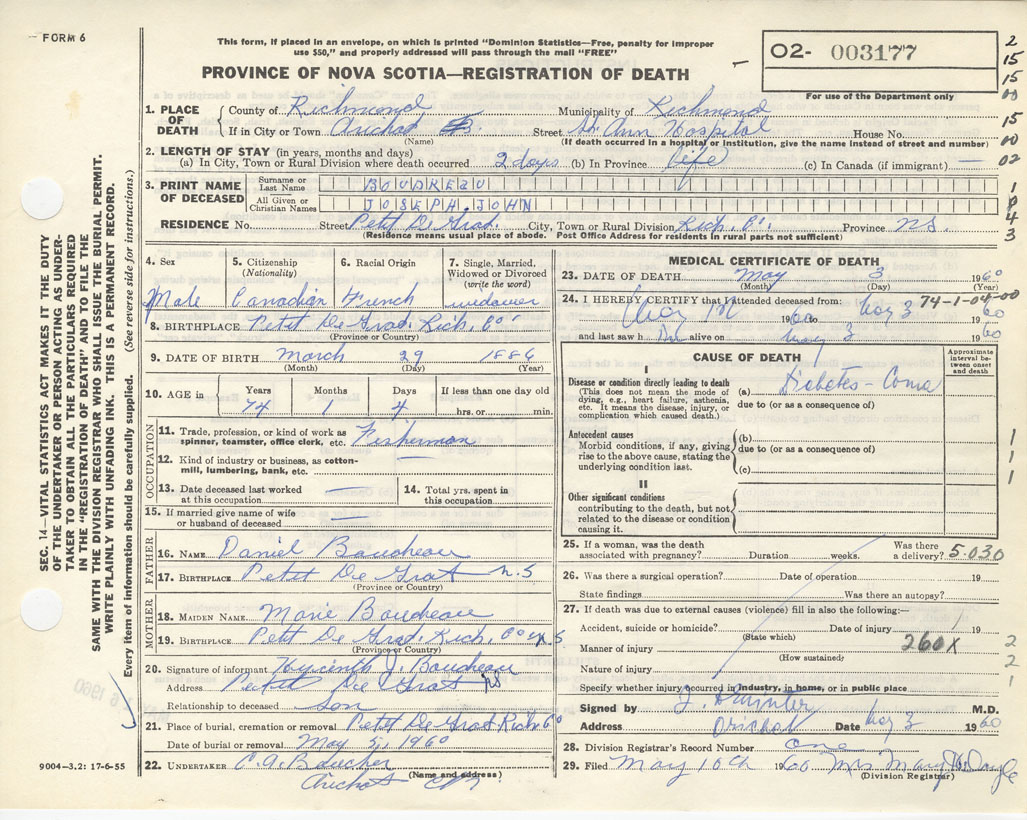 FORM 6
This form, if placed in an envelope, on which is printed "Dominion Statistics—Free, penalty for improper
use $50," and properly addressed will pass through the mail "FREE"
PROVINCE OF NOVA SCOTIA—REGISTRATION OF DEATH
02- 003177
For use of the Department only
2
15
15
00
15
00
02
1. PLACE OF DEATH
County of Richmond Municipality of Richmond
If in City or Town Arichat Street St. Ann Hospital House No.
(Name) (If death occurred in a hospital or institution, give the name instead of street and number)
2. LENGTH OF STAY (in years, months and days)
(a) In City, Town or Rural Division where death occurred 2 days (b) In Province Life (c) In Canada (if immigrant) —
3. PRINT NAME OF DECEASED
Surname or Last Name BOUDREAU
All Given or Christian Names JOSEPH JOHN
1
4
3
RESIDENCE No. Street Petit De Grat City, Town or Rural Division Rich. Co. Province NS.
(Residence means usual place of abode. Post Office Address for residents in rural parts not sufficient)
4. Sex Male
5. Citizenship (Nationality) Canadian
6. Racial Origin French
7. Single, Married, Widowed or Divorced (write the word) widower
8. BIRTHPLACE Petit De Grat Rich. Co.
(Province or Country)
9. DATE OF BIRTH March 29 1886
(Month) (Day) (Year)
10. AGE in Years Months Days If less than one day old
74 1 4 hrs. or min.
OCCUPATION
11. Trade, profession, or kind of work as spinner, teamster, office clerk, etc. Fisherman
12. Kind of industry or business, as cotton-mill, lumbering, bank, etc. —
13. Date deceased last worked at this occupation —
14. Total yrs. spent in this occupation
15. If married give name of wife or husband of deceased —
FATHER
16. NAME Daniel Boudreau
17. BIRTHPLACE Petit De Grat N.S
(Province or Country)
MOTHER
18. MAIDEN NAME Marie Boudreau
19. BIRTHPLACE Petit De Grat Rich. Co. N.S
(Province or Country)
20. Signature of informant Hycinth J. Boudreau
Address Petit De Grat NS
Relationship to deceased Son
21. Place of burial, cremation or removal Petit De Grat Rich. Co
Date of burial or removal May 5, 1960
22. UNDERTAKER C.A. Boucher
(Name and address)
Arichat
9004—3.2: 17-6-55
MEDICAL CERTIFICATE OF DEATH
23. DATE OF DEATH May 3 1960
(Month) (Day) (Year)
24. I HEREBY CERTIFY that I attended deceased from: 74-1-04-00
1960 to May 3 1960
and last saw h alive on May 3 1960
CAUSE OF DEATH
Approximate interval between onset and death
I
Disease or condition directly leading to death
(This does not mean the mode of dying, e.g., heart failure, asthenia, etc. It means the disease, injury, or complication which caused death.)
(a) Diabetes - Coma
due to (or as a consequence of)
Antecedent causes
Morbid conditions, if any, giving rise to the above cause, stating the underlying condition last.
(b)
due to (or as a consequence of)
(c)
1
1
1
II
Other significant conditions
contributing to the death, but not related to the disease or condition causing it.
25. If a woman, was the death associated with pregnancy? Duration weeks. Was there a delivery? 5-030
26. Was there a surgical operation? Date of operation 19
State findings Was there an autopsy?
27. If death was due to external causes (violence) fill in also the following:—
Accident, suicide or homicide? Date of injury 19
(State which)
Manner of injury 260X
(How sustained)
Nature of injury
2
2
1
Specify whether injury occurred in industry, in home, or in public place
Signed by M.D.
Address Arichat Date May 3 1960
28. Division Registrar's Record Number one
29. Filed May 10th 1960 Mrs Mary Doyle
(Division Registrar)
SEC. 14—VITAL STATISTICS ACT MAKES IT THE DUTY
OF THE UNDERTAKER OR PERSON ACTING AS UNDER-
TAKER TO OBTAIN ALL THE PARTICULARS REQUIRED
IN THE "REGISTRATION OF DEATH" AND TO FILE THE
SAME WITH THE DIVISION REGISTRAR WHO SHALL ISSUE THE BURIAL PERMIT.
WRITE PLAINLY WITH UNFADING INK. THIS IS A PERMANENT RECORD.
Every item of information should be carefully supplied. (See reverse side for instructions.)